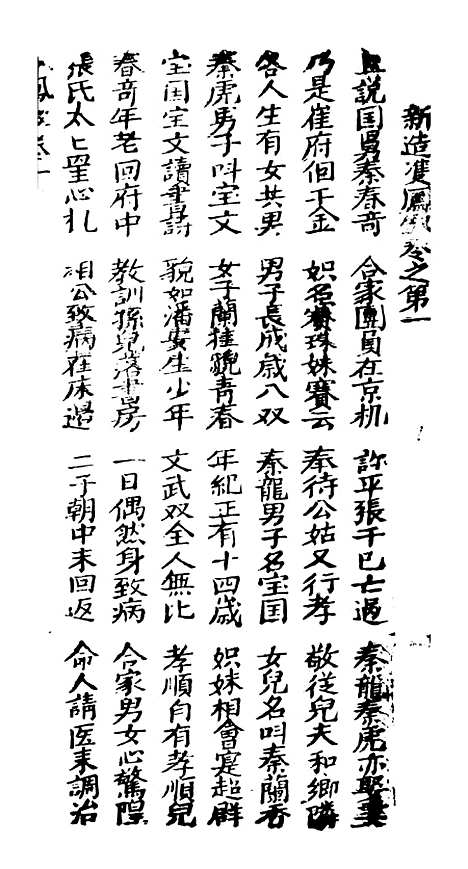 新造双鳳𫝊卷之第一
且説国舅秦春奇 合家團員在京机 許平張千已亡過 秦龍秦虎亦娶妻
乃是崔府但千金 姐名賽珠妹賽云 奉待公姑又行孝 敬從兒夫和鄉隣
各人生有女共男 男子長成歲八双 秦龍男子名宝国 女兒名叫秦蘭香
秦虎男子叫宝文 女子蘭桂貌青春 年紀正有十四歲 姐妹相會寔超群
宝国宝文讀書詩 貌如潘安生少年 文武双全人無比 孝順自有孝順兒
春奇年老回府中 教訓孫兒落書房 一日偶然身致病 合家男女心驚惶
張氏太上里心扎 相公致病在床邊 二子朝中未回返 命人請医来調治